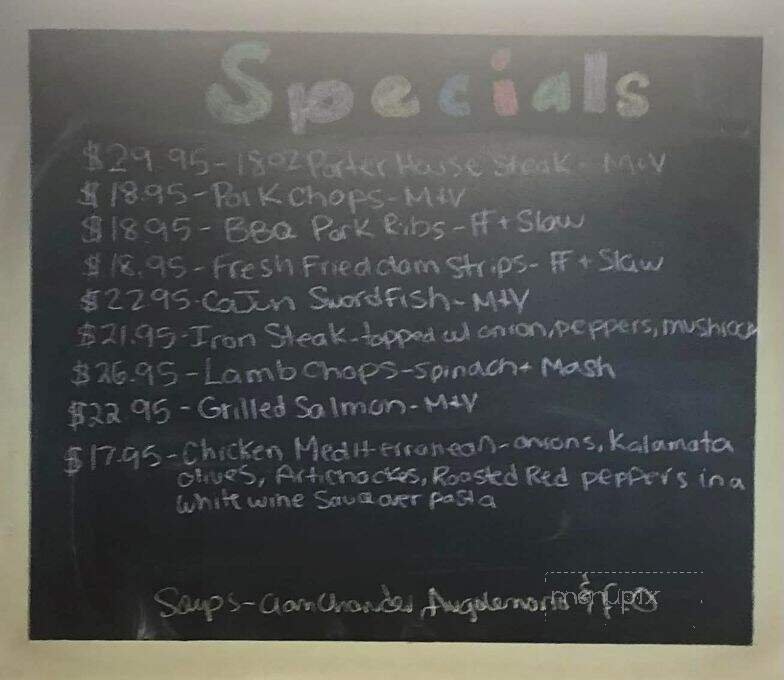 Specials
$29.95-18oz Porter House Steak- M+V
$18.95-Pork Chops-M+V
$18.95-BBQ Pork Ribs-FF+Slaw
$18.95-Fresh Fried clam Strips-FF+Slaw
$22.95-Cajun Swordfish-M+V
$21.95-Iron Steak-topped w/ onion, peppers, mushroom
$26.95-Lamb Chops-spinach+ Mash
$22.95-Grilled Salmon-M+V
$17.95-Chicken Mediterranean-onions, Kalamata
olives, Artichockes, Roasted Red peppers in a
white wine Sauce over pasta
Soups-Clam Chowder,
menupix